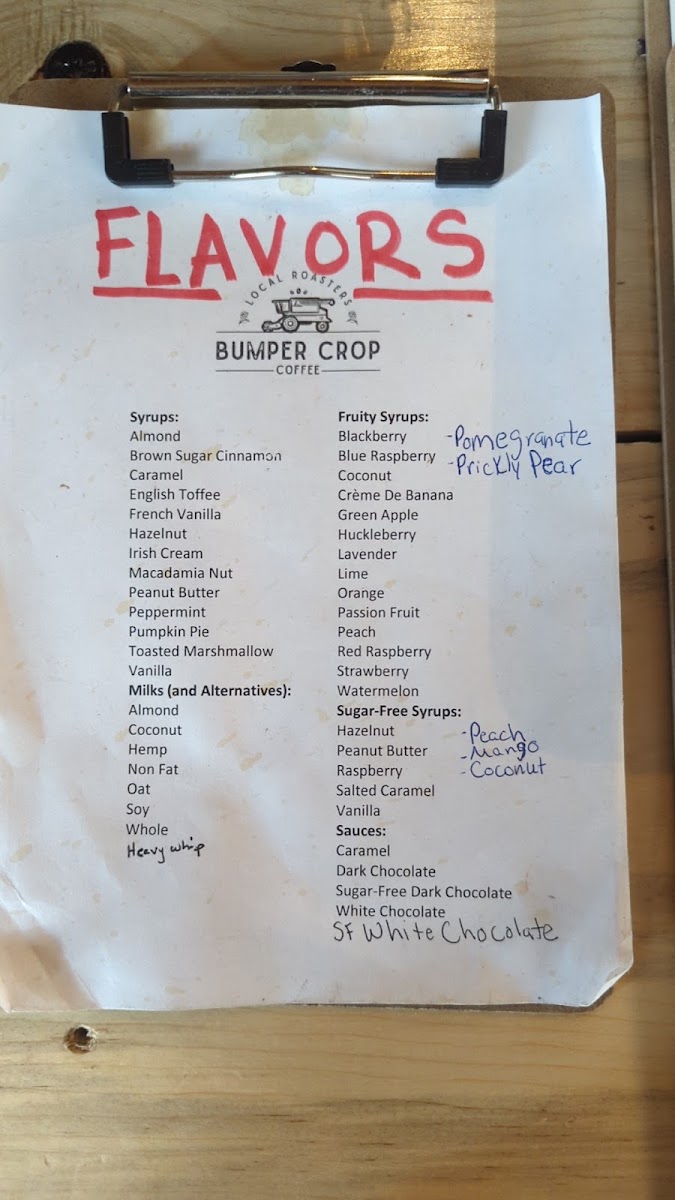 FLAVORS
LOCAL ROASTERS
BUMPER CROP
COFFEE
Syrups:
Almond
Brown Sugar Cinnamon
Caramel
English Toffee
French Vanilla
Hazelnut
Irish Cream
Macadamia Nut
Peanut Butter
Peppermint
Pumpkin Pie
Toasted Marshmallow
Vanilla
Milks (and Alternatives):
Almond
Coconut
Hemp
Non Fat
Oat
Soy
Whole
Heavy whip
Fruity Syrups:
Blackberry -Pomegranate
Blue Raspberry -Prickly Pear
Coconut
Crème De Banana
Green Apple
Huckleberry
Lavender
Lime
Orange
Passion Fruit
Peach
Red Raspberry
Strawberry
Watermelon
Sugar-Free Syrups:
Hazelnut -Peach
Peanut Butter -Mango
Raspberry -Coconut
Salted Caramel
Vanilla
Sauces:
Caramel
Dark Chocolate
Sugar-Free Dark Chocolate
White Chocolate
SF White Chocolate